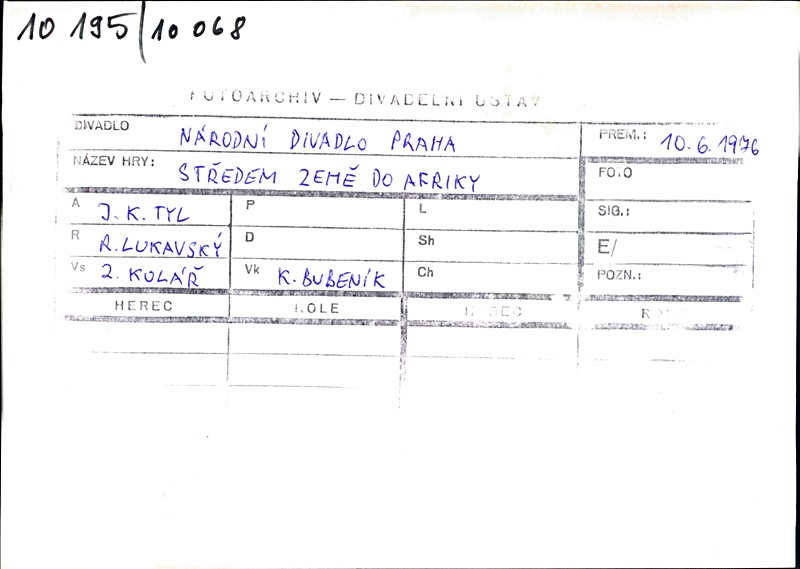 10 195/10 068
FOTOARCHIV — DIVADELNÍ ÚSTAV
DIVADLO NÁRODNÍ DIVADLO PRAHA PREM.: 10.6.1976
NÁZEV HRY: STŘEDEM ZEMĚ DO AFRIKY FOTO
A J. K. TYL P L SIG.:
R R. LUKAVSKÝ D Sh E/
Vs Z. KOLÁŘ Vk K. BUBENÍK Ch POZN.:
HEREC ROLE HEREC ROLE